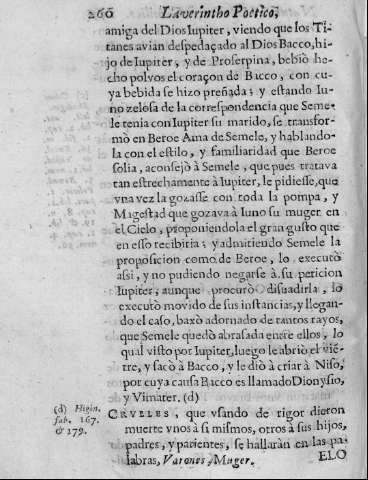 260 Laverintho Poetico,
amiga del Dios Iupiter, viendo que los Ti-
tanes avian despedaçado al Dios Bacco, hi-
jo de Iupiter, y de Proserpina, bebiò he-
cho polvos el coraçon de Bacco, con cu-
ya bebida se hizo preñada; y estando Iu-
no zelosa de la correspondencia que Seme-
le tenia con Iupiter su marido, se transfor-
mò en Beroe Ama de Semele, y hablando-
la con el estilo, y familiaridad que Beroe
solia, aconsejò à Semele, que pues tratava
tan estrechamente à Iupiter, le pidiesse, que
vna vez la gozasse con toda la pompa, y
Magestad que gozava à Iuno su muger en
el Cielo, proponiendola el gran gusto que
en esso recibiria; y admitiendo Semele la
proposicion como de Beroe, lo executò
assi, y no pudiendo negarse à su peticion
Iupiter, aunque procurò disuadirla, lo
executò movido de sus instancias, y llegan-
do el caso, baxò adornado de tantos rayos,
que Semele quedò abrasada entre ellos, lo
qual visto por Iupiter, luego le abriò el viē-
tre, y sacò à Bacco, y le diò à criar à Niso,
por cuya causa Bacco es llamado Dionysio,
y Vimater. (d)
(d) Higin.
fab. 167.
& 179.
CRVELES, que vsando de rigor dieron
muerte vnos à si mismos, otros à sus hijos,
padres, y parientes, se hallaràn en las pa-
labras, Varones, Muger.
ELO